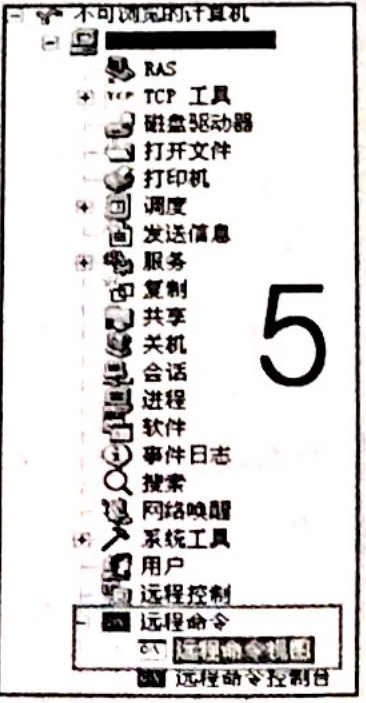 不可浏览的计算机
RAS
TCP TCP 工具
磁盘驱动器
打开文件
打印机
调度
发送信息
服务
复制
共享
关机
会话
进程
软件
事件日志
搜索
网络唤醒
系统工具
用户
远程控制
远程命令
远程命令视图
远程命令控制台
5